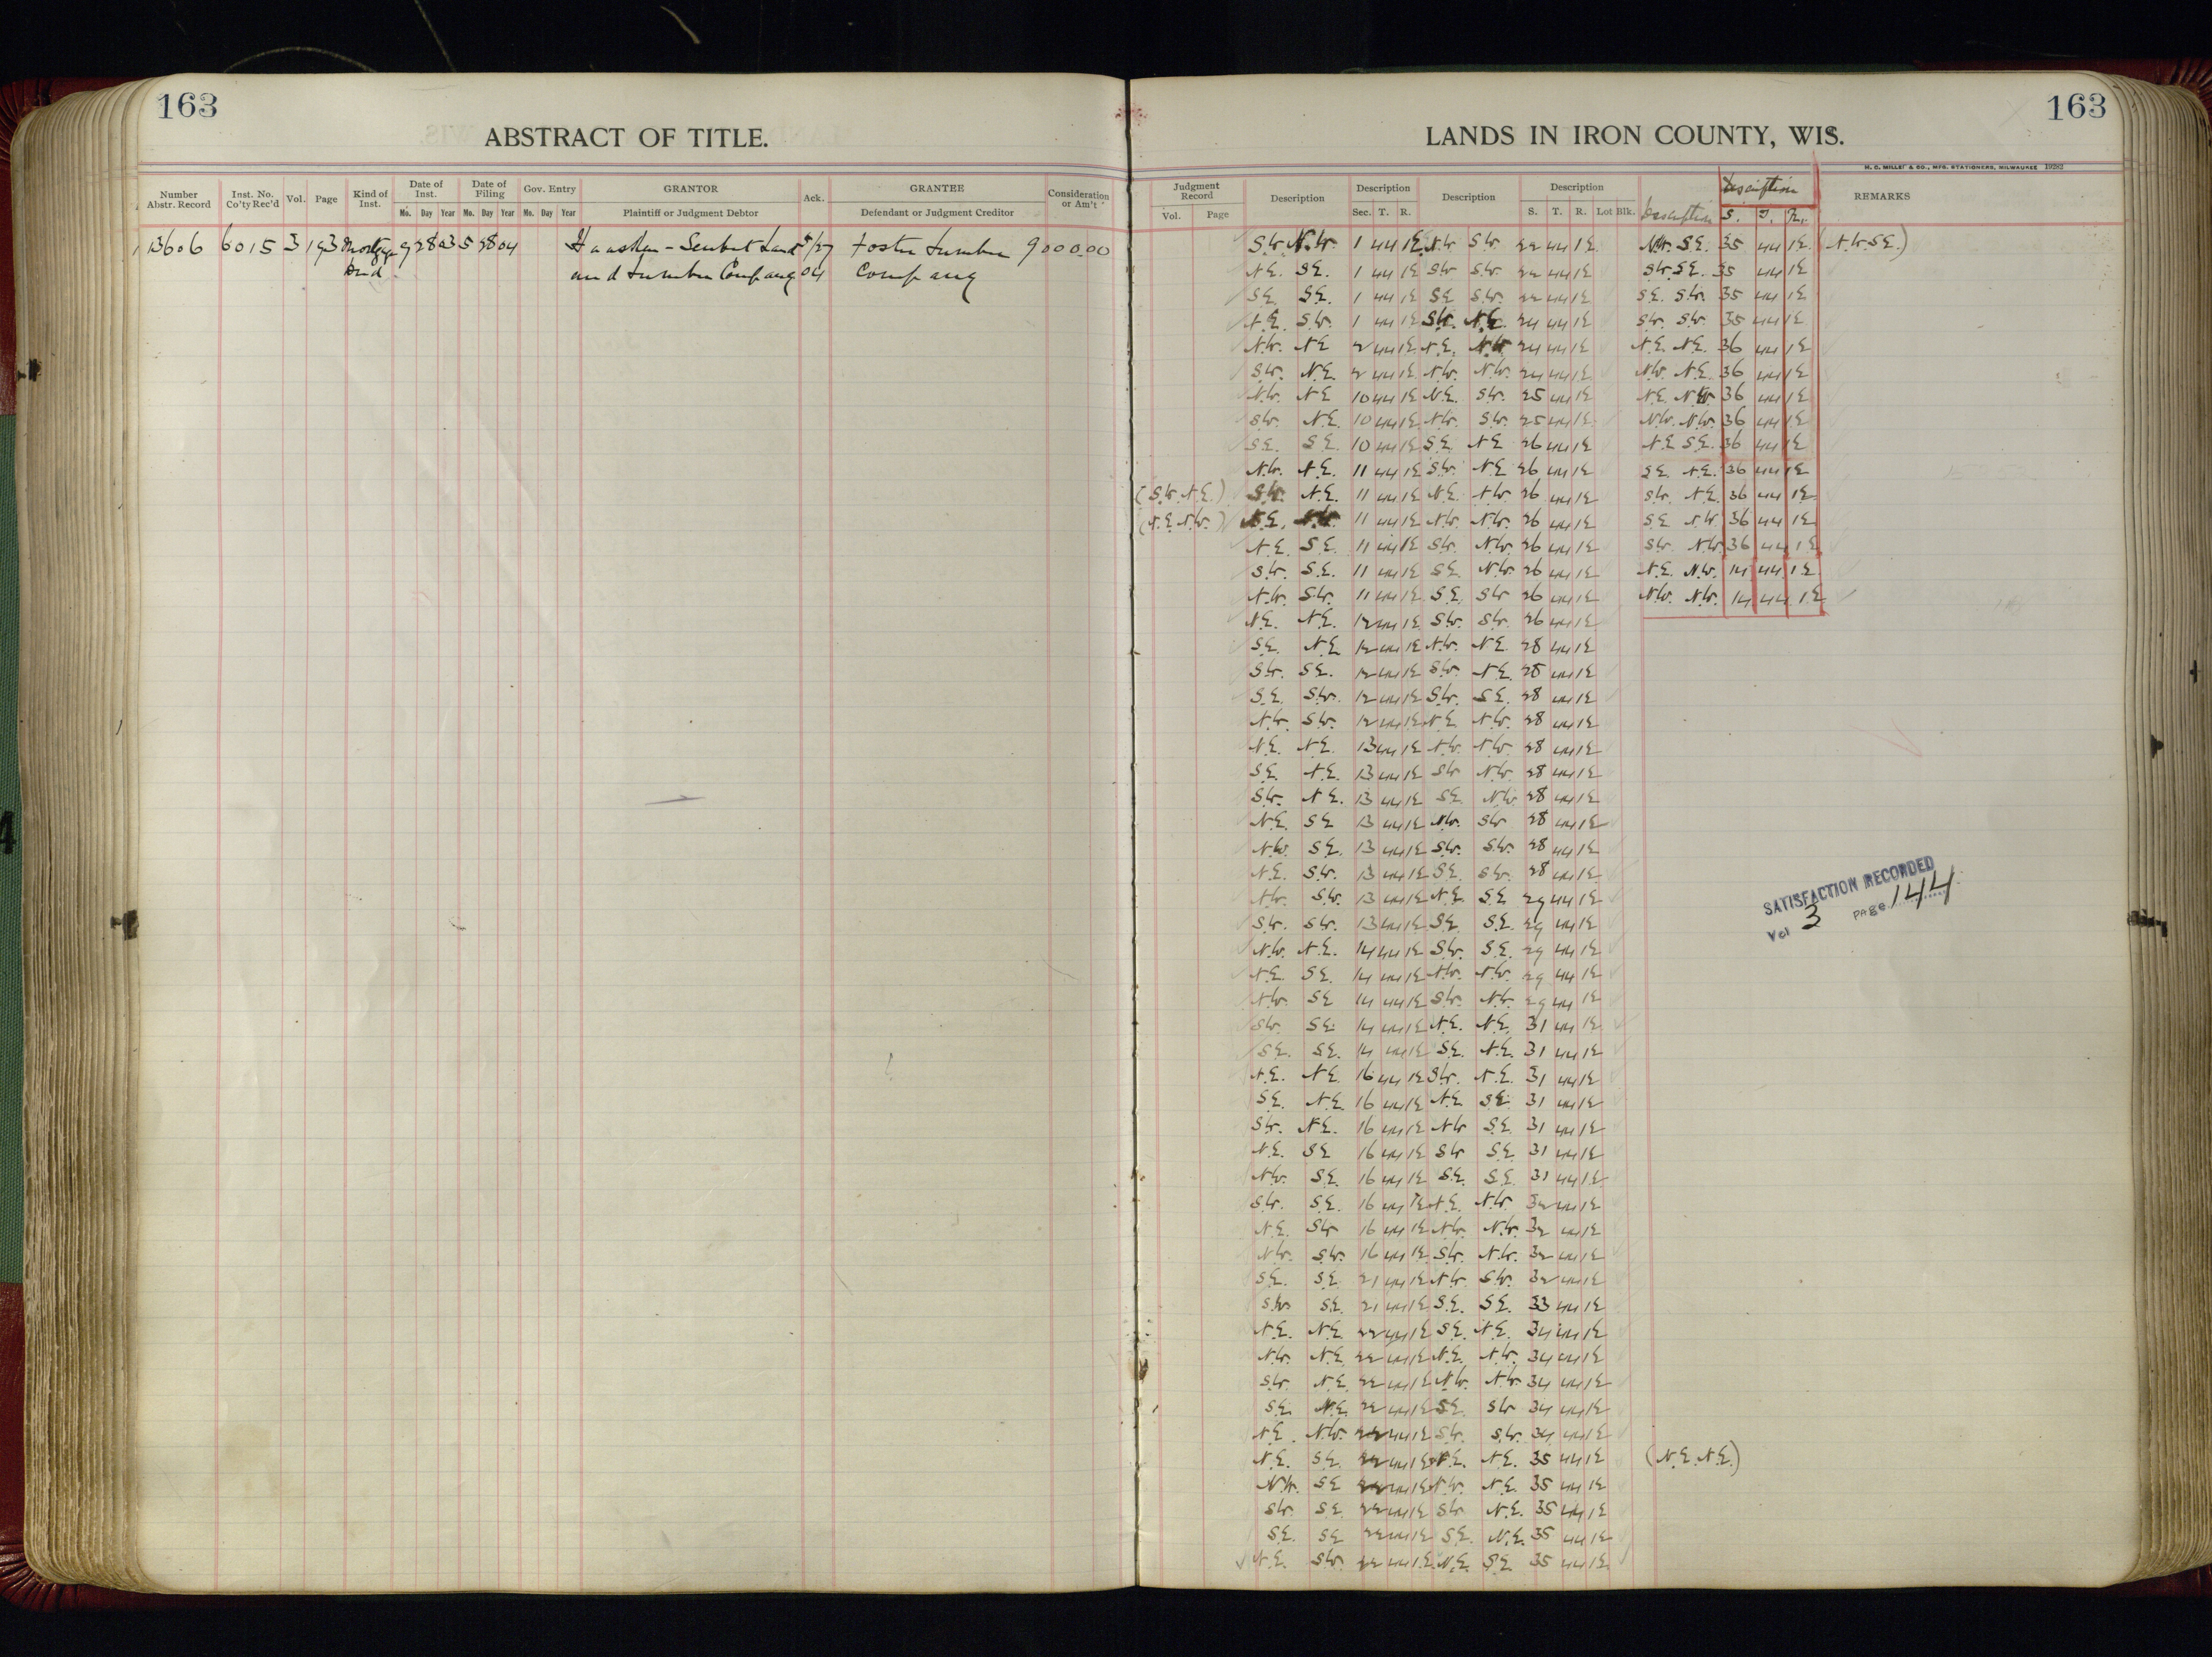 163
ABSTRACT OF TITLE.
Number Abstr. Record
Inst. No. Co'ty Rec'd
Vol.
Page
Kind of Inst.
Date of Inst.
Mo. Day Year
Date of Filing
Mo. Day Year
Gov. Entry
Mo. Day Year
GRANTOR
Plaintiff or Judgment Debtor
Ack.
GRANTEE
Defendant or Judgment Creditor
Consideration or Am't
13606 6015 3 193 Mortgage 9 28 03 5 28 04 Land 5/27 Foster Lumber 9000.00
Deed and Lumber Company 04 Company
163
LANDS IN IRON COUNTY, WIS.
H. C. MILLER & CO., MFG. STATIONERS, MILWAUKEE 19282
Judgment Record
Vol. Page
Description
Description
Sec. T. R.
Description
Description
S. T. R. Lot Blk.
Description
Description
S. T. R.
REMARKS
S.W. N.W. 1 44 1E N.W. S.W. 22 44 1E N.W. S.E. 35 44 1E (N.W. S.E.)
N.E. S.E. 1 44 1E S.W. S.W. 22 44 1E S.W. S.E. 35 44 1E
S.E. S.E. 1 44 1E S.E. S.W. 22 44 1E S.E. S.W. 35 44 1E
N.E. S.W. 1 44 1E S.W. N.E. 24 44 1E S.W. S.W. 35 44 1E
N.W. N.E. 2 44 1E N.E. N.W. 24 44 1E N.E. N.E. 36 44 1E
S.W. N.E. 2 44 1E N.W. N.W. 24 44 1E N.W. N.E. 36 44 1E
N.W. N.E. 10 44 1E N.E. S.W. 25 44 1E N.E. N.W. 36 44 1E
S.W. N.E. 10 44 1E N.W. S.W. 25 44 1E N.W. N.W. 36 44 1E
S.E. S.E. 10 44 1E S.E. N.E. 26 44 1E N.E. S.E. 36 44 1E
N.W. N.E. 11 44 1E S.W. N.E. 26 44 1E S.E. N.E. 36 44 1E
(S.W. N.E.) S.W. N.E. 11 44 1E N.E. N.W. 26 44 1E S.W. N.E. 36 44 1E
(N.E. N.W.) N.E. N.W. 11 44 1E N.W. N.W. 26 44 1E S.E. N.W. 36 44 1E
N.E. S.E. 11 44 1E S.W. N.W. 26 44 1E S.W. N.W. 36 44 1E
S.W. S.E. 11 44 1E S.E. N.W. 26 44 1E N.E. N.W. 14 44 1E
N.W. S.W. 11 44 1E S.E. S.W. 26 44 1E N.W. N.W. 14 44 1E
N.E. N.E. 12 44 1E S.W. S.W. 26 44 1E
S.E. N.E. 12 44 1E N.W. N.E. 28 44 1E
S.W. S.E. 12 44 1E S.W. N.E. 28 44 1E
S.E. S.W. 12 44 1E S.W. S.E. 28 44 1E
N.W. S.W. 12 44 1E N.E. N.W. 28 44 1E
N.E. N.E. 13 44 1E N.W. N.W. 28 44 1E
S.E. N.E. 13 44 1E S.W. N.W. 28 44 1E
S.W. N.E. 13 44 1E S.E. N.W. 28 44 1E
N.E. S.E. 13 44 1E N.W. S.W. 28 44 1E
N.W. S.E. 13 44 1E S.W. S.W. 28 44 1E
N.E. S.W. 13 44 1E S.E. S.W. 28 44 1E
N.W. S.W. 13 44 1E N.E. S.E. 29 44 1E
S.W. S.W. 13 44 1E S.E. S.E. 29 44 1E
N.W. N.E. 14 44 1E S.W. S.E. 29 44 1E
N.E. S.E. 14 44 1E N.W. N.W. 29 44 1E
N.W. S.E. 14 44 1E S.W. N.W. 29 44 1E
S.W. S.E. 14 44 1E N.E. N.E. 31 44 1E
S.E. S.E. 14 44 1E S.E. N.E. 31 44 1E
N.E. N.E. 16 44 1E S.W. N.E. 31 44 1E
S.E. N.E. 16 44 1E N.E. S.E. 31 44 1E
S.W. N.E. 16 44 1E N.W. S.E. 31 44 1E
N.E. S.E. 16 44 1E S.W. S.E. 31 44 1E
N.W. S.E. 16 44 1E S.E. S.E. 31 44 1E
S.W. S.E. 16 44 1E N.E. N.W. 32 44 1E
N.E. S.W. 16 44 1E N.W. N.W. 32 44 1E
N.W. S.W. 16 44 1E S.W. N.W. 32 44 1E
S.E. S.E. 21 44 1E N.W. S.W. 32 44 1E
S.W. S.E. 21 44 1E S.E. S.E. 33 44 1E
N.E. N.E. 22 44 1E S.E. N.E. 34 44 1E
N.W. N.E. 22 44 1E N.E. N.W. 34 44 1E
S.W. N.E. 22 44 1E N.W. N.W. 34 44 1E
S.E. N.E. 22 44 1E S.E. S.W. 34 44 1E
N.E. N.W. 22 44 1E S.W. S.W. 34 44 1E
N.E. S.E. 22 44 1E N.E. N.E. 35 44 1E (N.E. N.E.)
N.W. S.E. 22 44 1E N.W. N.E. 35 44 1E
S.W. S.E. 22 44 1E S.W. N.E. 35 44 1E
S.E. S.E. 22 44 1E S.E. N.E. 35 44 1E
N.E. S.W. 22 44 1E N.E. S.E. 35 44 1E
SATISFACTION RECORDED
Vol 3 PAGE 144